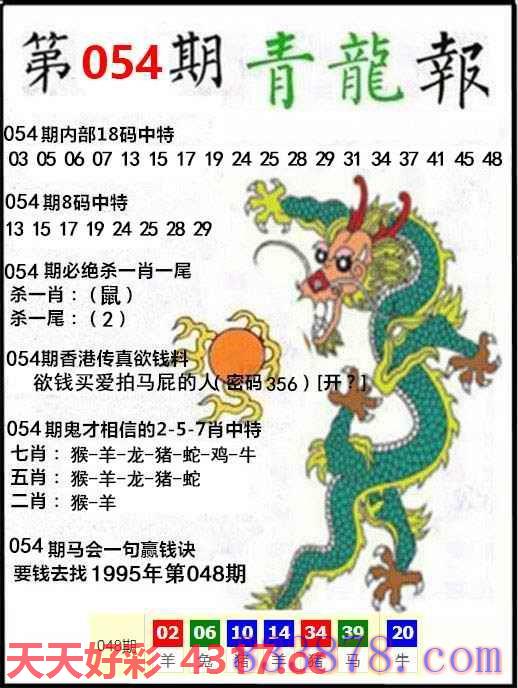 第054期青龍報
054期内部18码中特
03 05 06 07 13 15 17 19 24 25 28 29 31 34 37 41 45 48
054期8码中特
13 15 17 19 24 25 28 29
054期必绝杀一肖一尾
杀一肖：（鼠）
杀一尾：（2）
054期香港传真欲钱料
欲钱买爱拍马屁的人（密码356）[开？]
054期鬼才相信的2-5-7肖中特
七肖：猴-羊-龙-猪-蛇-鸡-牛
五肖：猴-羊-龙-猪-蛇
二肖：猴-羊
054期马会一句赢钱诀
要钱去找1995年第048期
048期 02 06 10 14 34 39 20
羊 兔 猪 羊 猪 马 牛
天天好彩-4317.cc